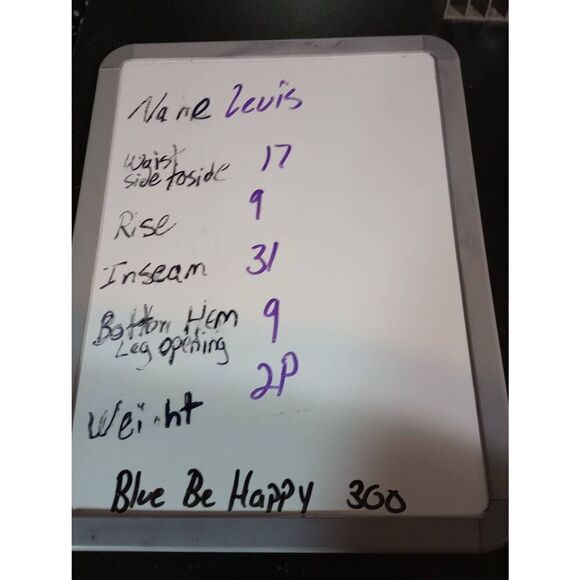 Name Levis
Waist 17
side to side
Rise 9
Inseam 31
Bottom Hem 9
Leg opening
2P
Weight
Blue Be Happy 300